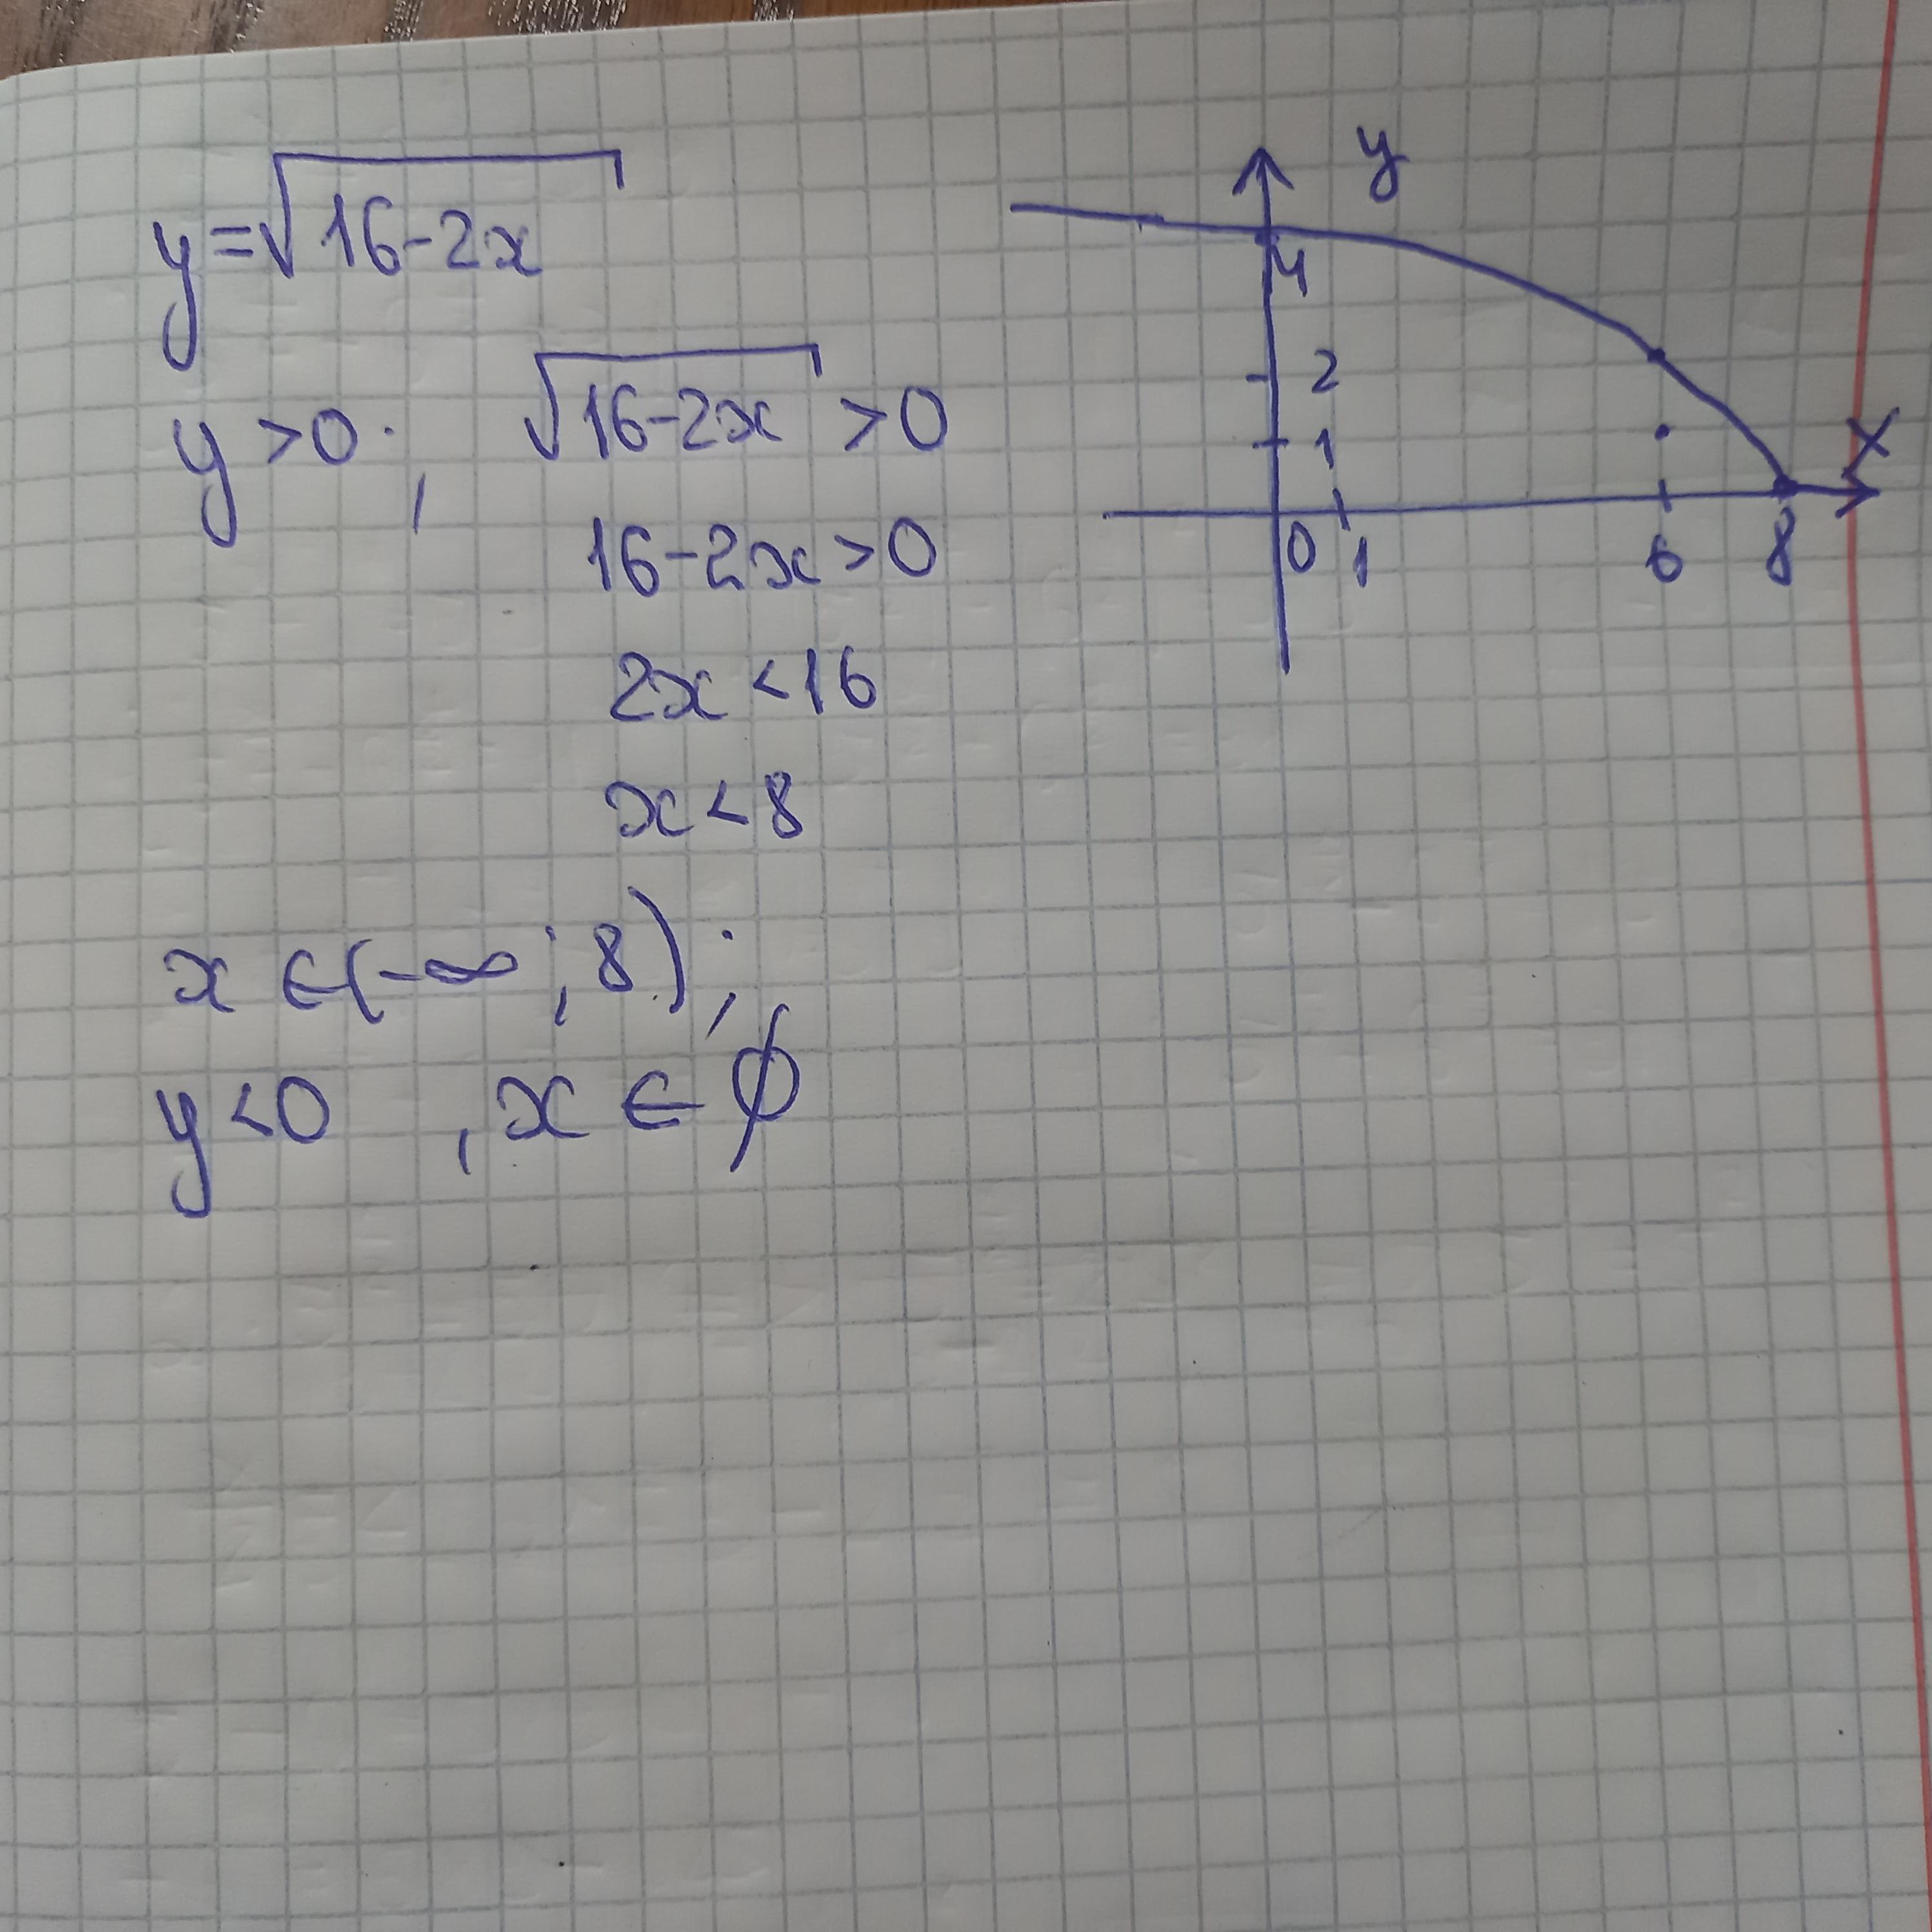 y=√16-2x
y>0; √16-2x >0
16-2x>0
2x<16
x<8
x∈(-∞;8);
y<0 ,x∈∅
y
4
2
1
x
0 1 6 8